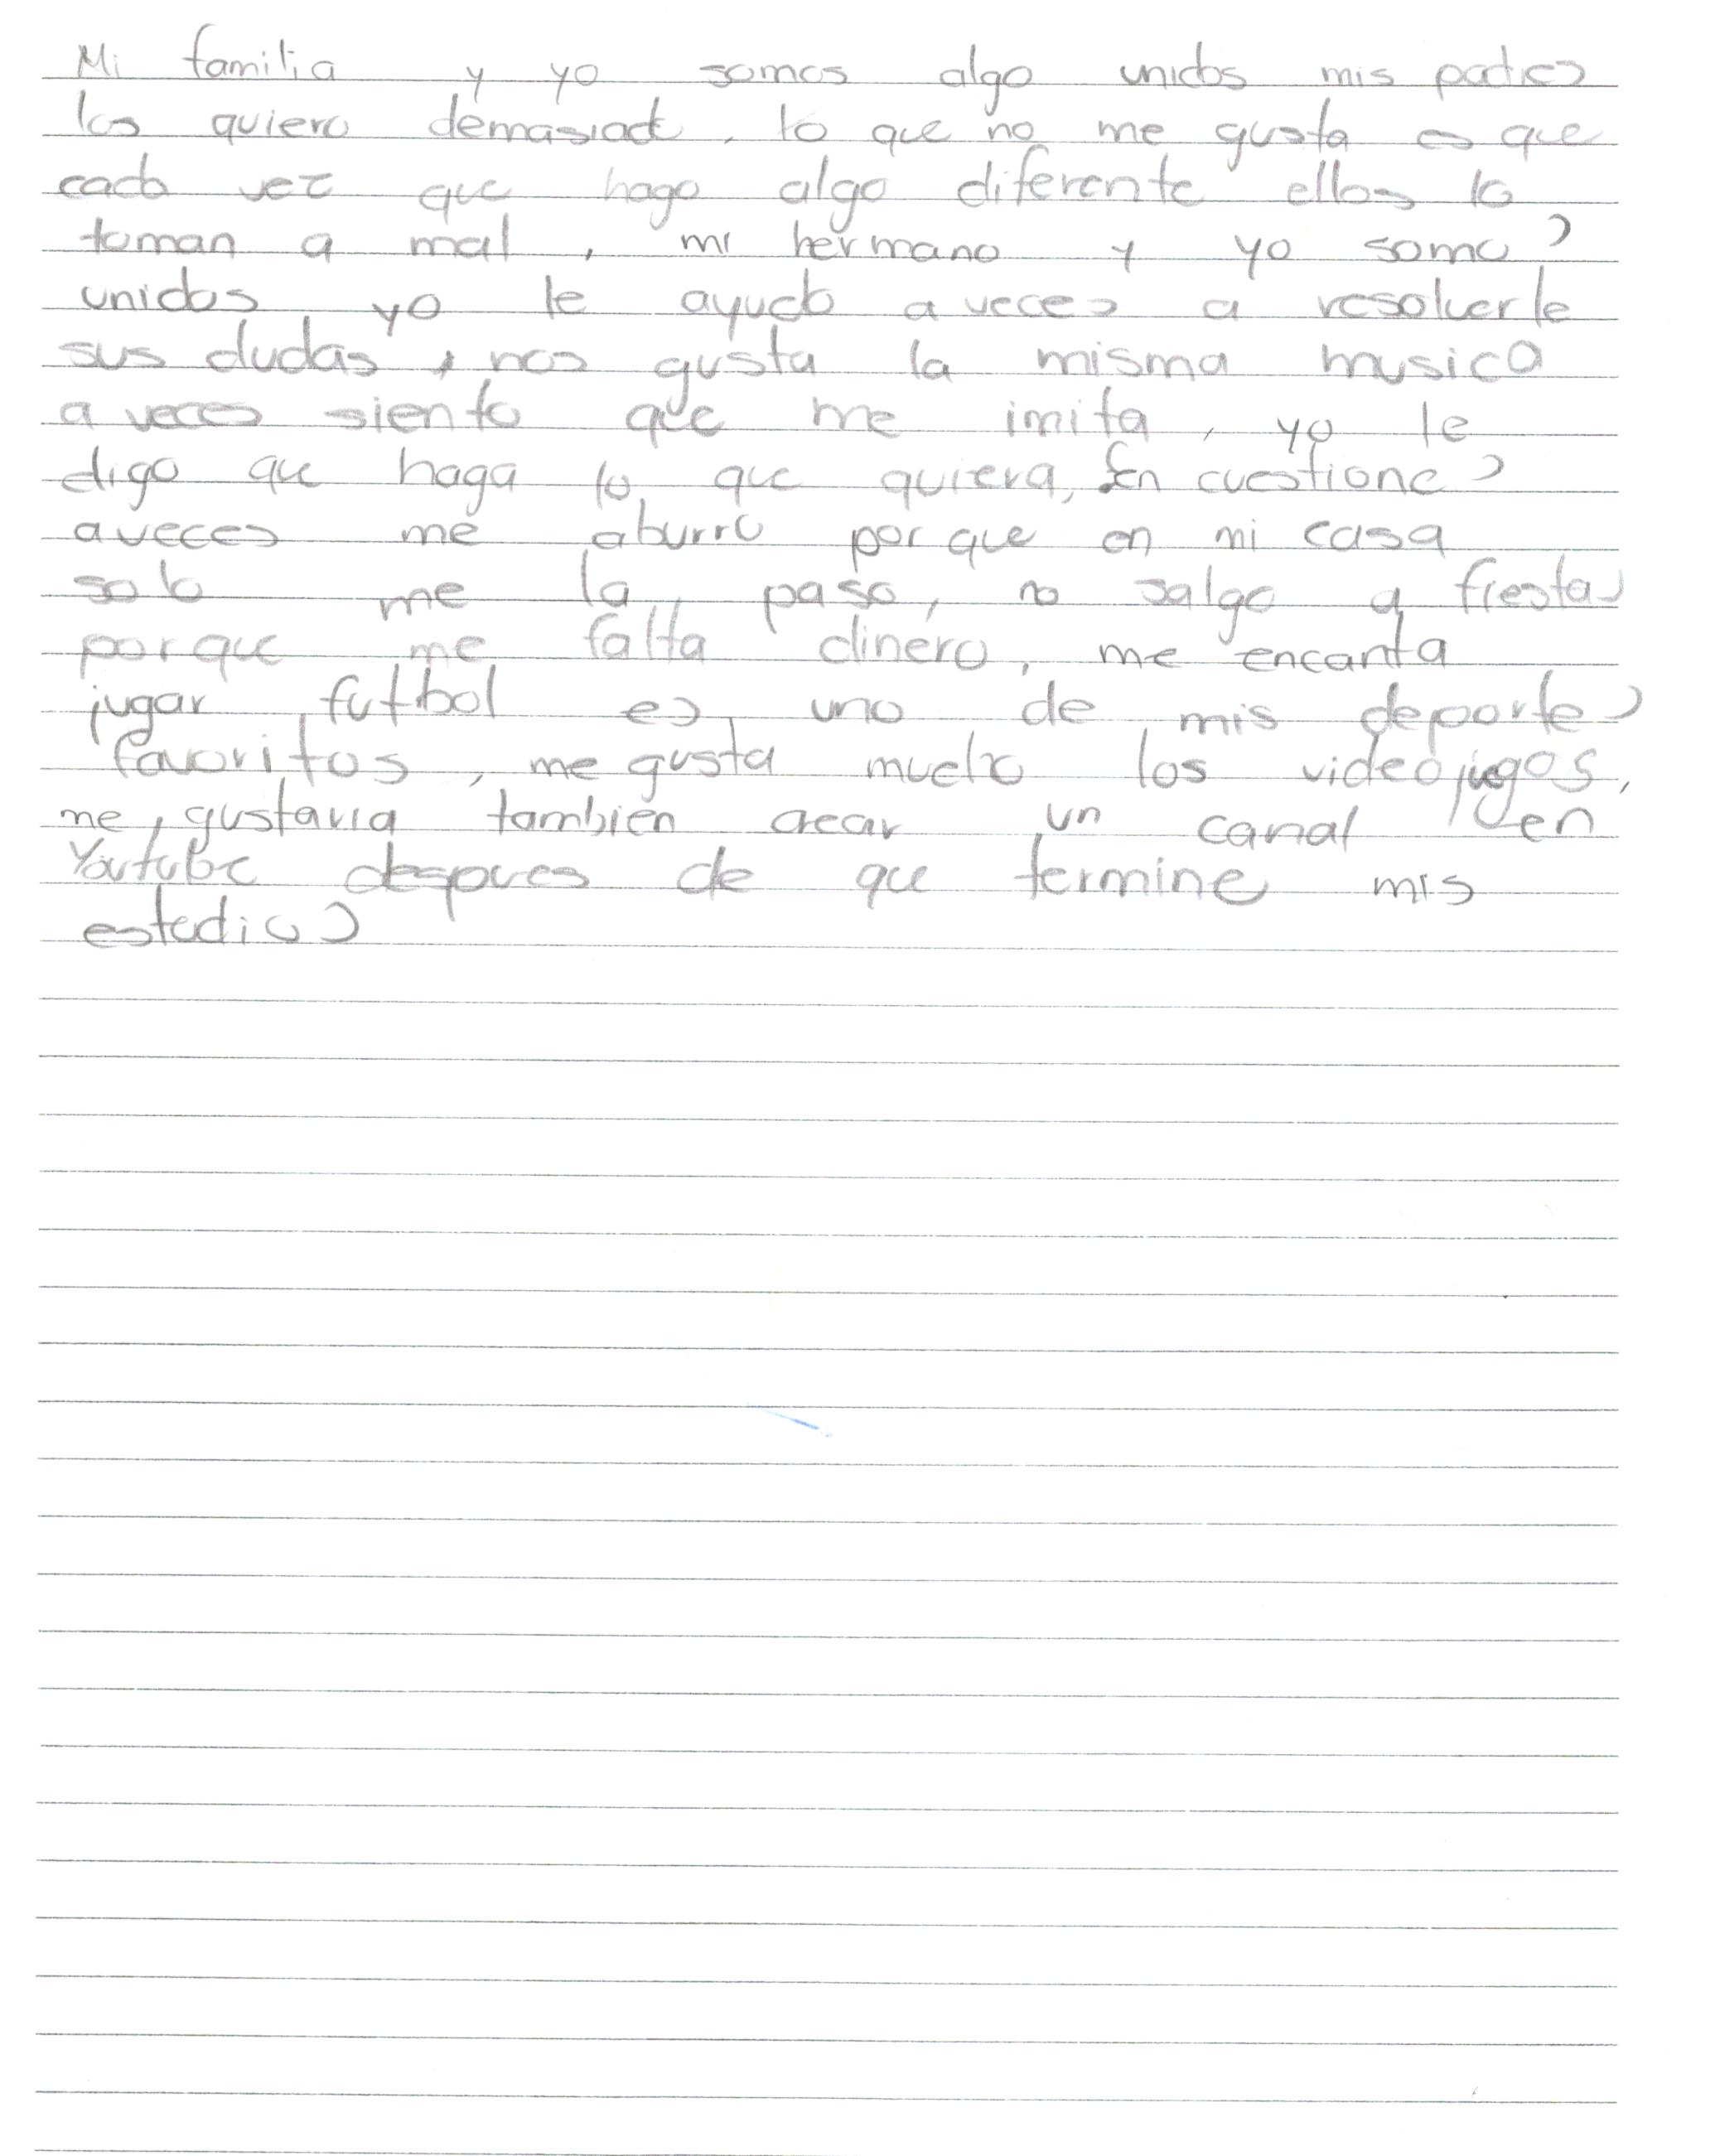 Mi familia y yo somos algo unidos mis padres
los quiero demasiado, lo que no me gusta es que
cada vez que hago algo diferente ellos lo
toman a mal, mi hermano y yo somos
unidos yo le ayudo a veces a resolverle
sus dudas, nos gusta la misma musica
a veces siento que me imita, yo le
digo que haga lo que quiera, En cuestiones
aveces me aburro porque en mi casa
solo me la paso, no salgo a fiestas
porque me falta dinero, me encanta
jugar futbol es uno de mis deportes
favoritos, me gusta mucho los videojuegos,
me gustaria tambien crear un canal en
Youtube despues de que termine mis
estudios